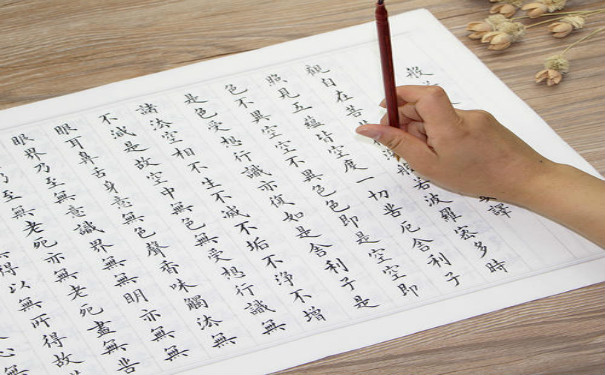 般
譯
觀自在菩
般若波羅蜜多時
照見五蘊皆空度一切苦厄舍利子
色不異空空不異色色即是空空即
是色受想行識亦復如是舍利子是
諸法空相不生不滅不垢不淨不增
不減是故空中無色無受想行識無
眼耳鼻舌身意無色聲香味觸法無
眼界乃至無意識界無無明亦無無
乃至無老死亦無老死盡無苦
得以無所得故
心無